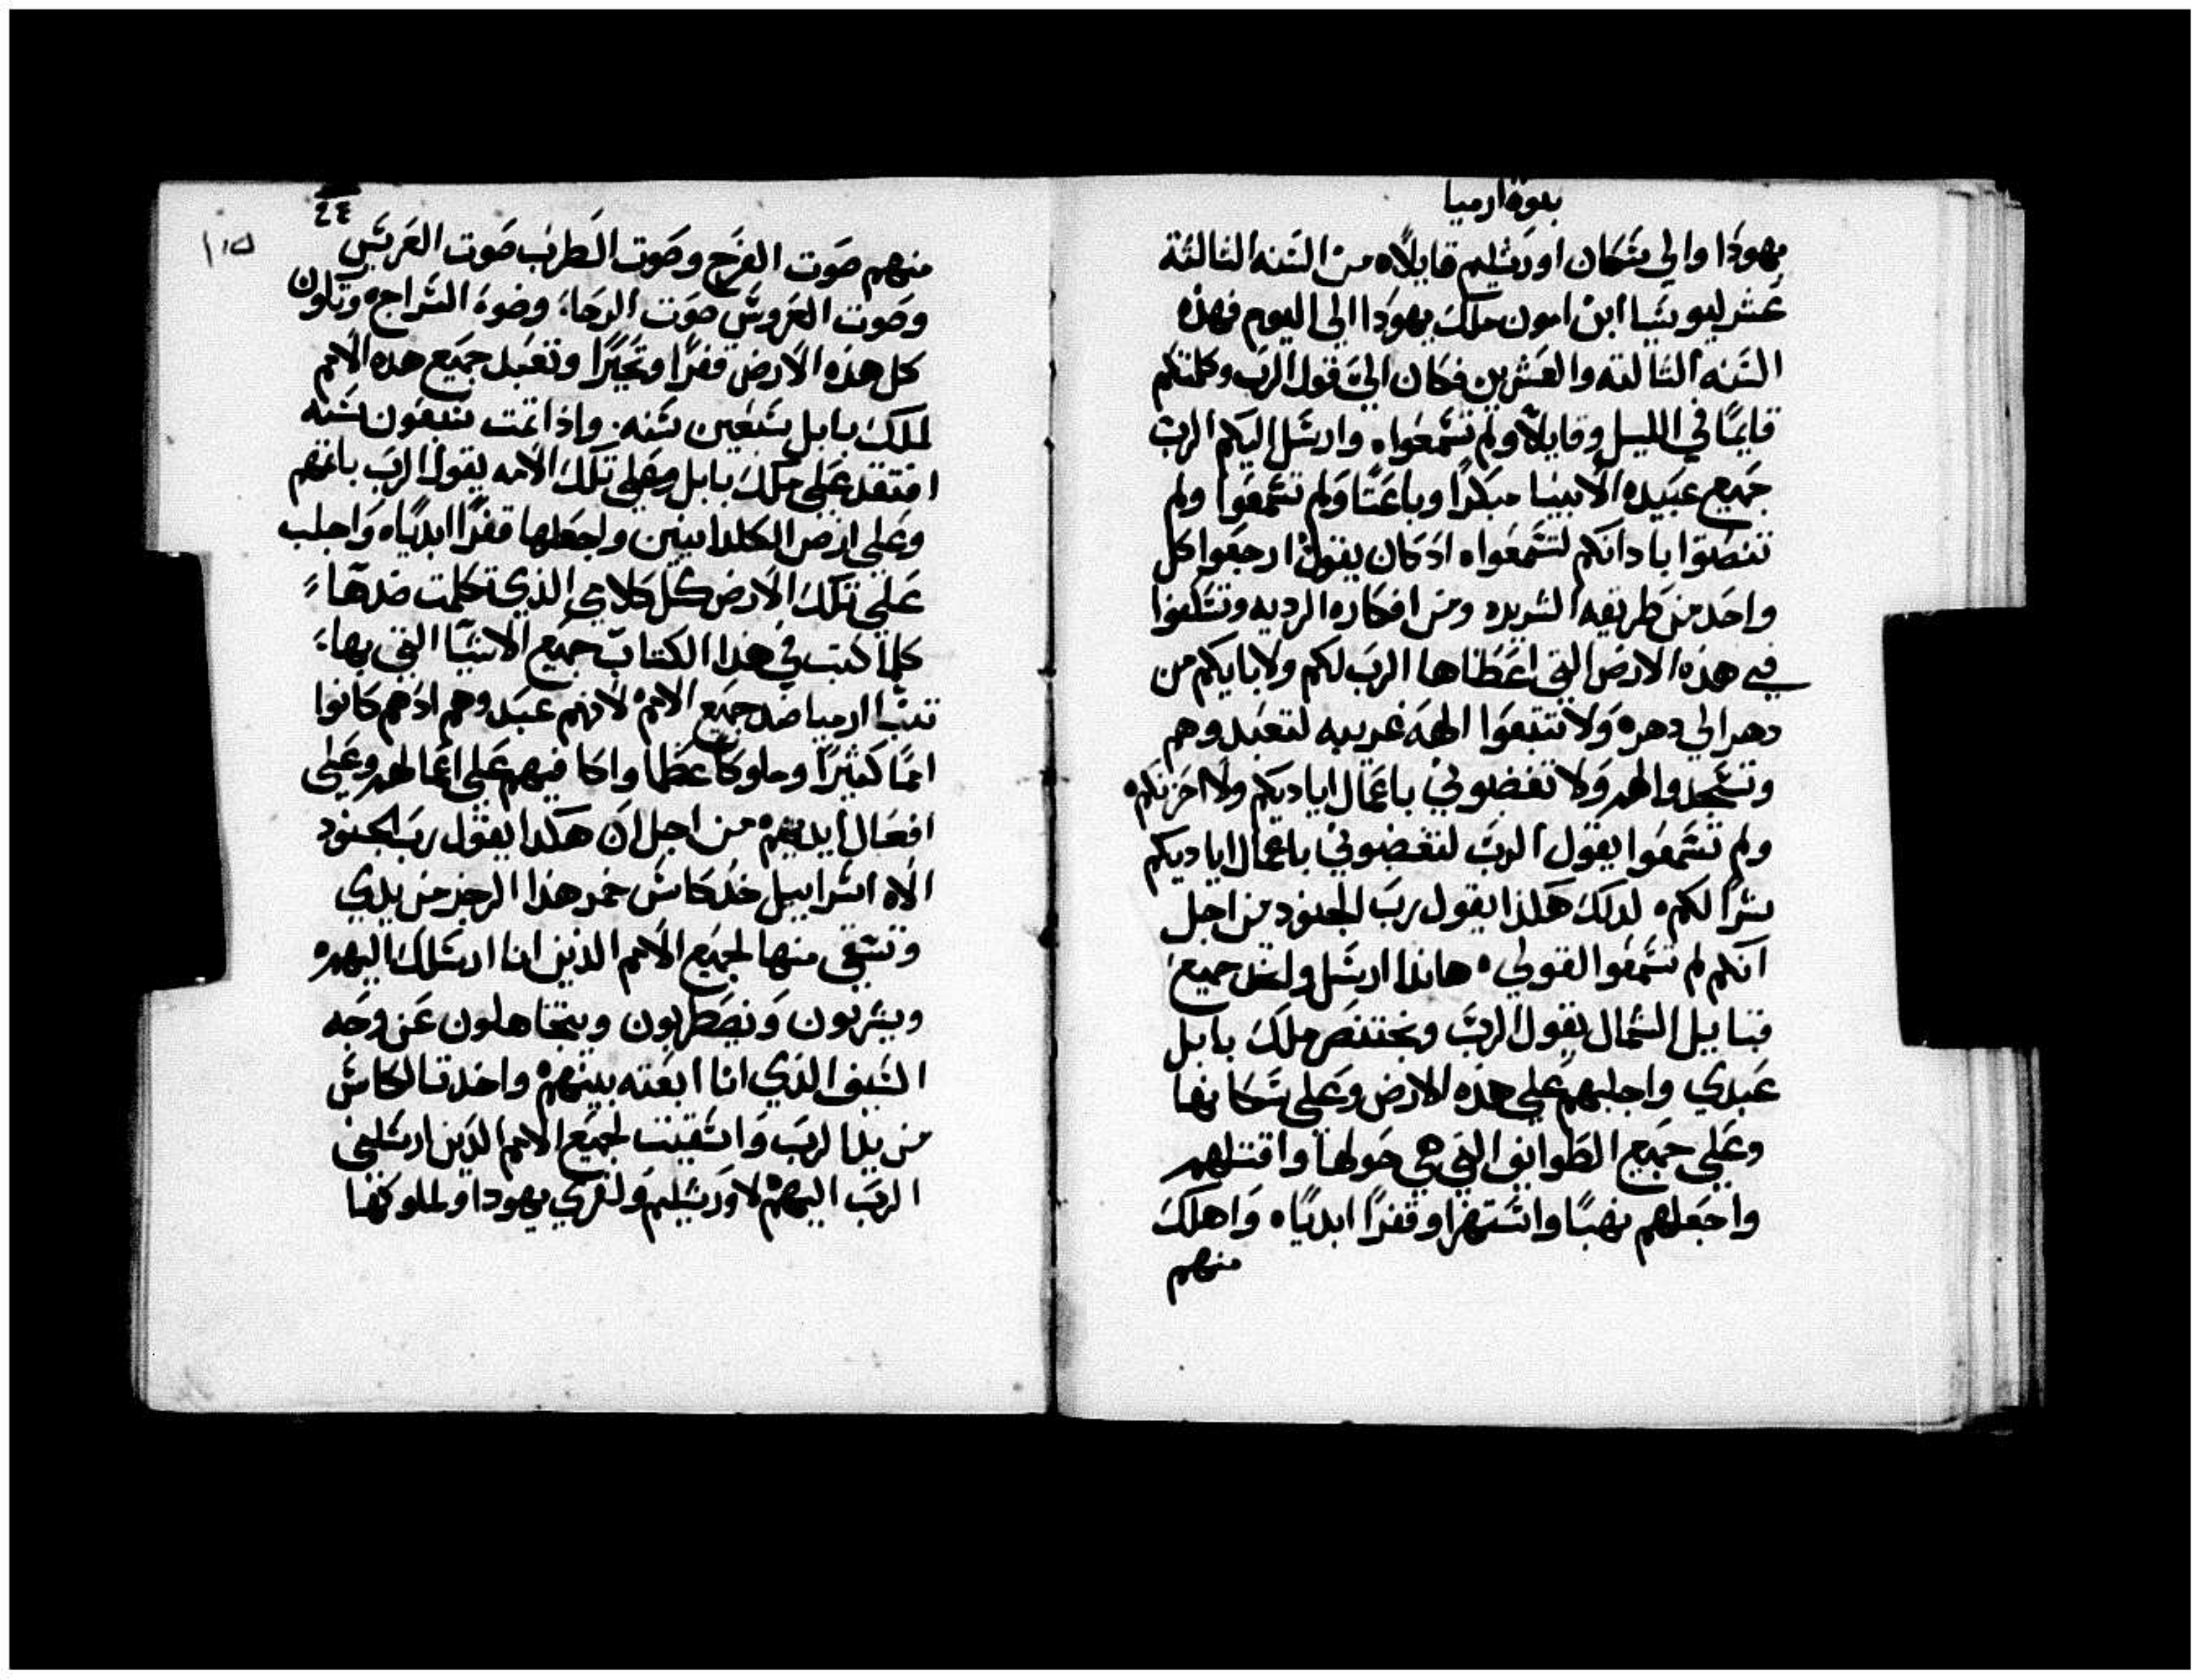 نبوة ارميا
يهودا والي سكان اورشليم قايلاً ٥ من السنه الثالثة
عشر ليوشيا ابن امون ملك يهودا الى اليوم فهذه
السنه الثالثه والعشرين فكان اليّ قول الرب وكلمتكم
قايمًا في الليل وقايلاً ولم تسمعوا ٥ وارسل اليكم الرب
جميع عبيده الانبيا مبكرًا وباعثًا ولم تسمعوا ولم
تنصتوا باذانكم لتسمعوا ٥ اذ كان يقول ارجعوا كل
واحد من طريقه الشريره ومن افكاره الرديه وتسكنوا
في هذه الارض التي اعطاها الرب لكم ولابايكم من
دهر الي دهر ٥ ولا تتبعوا الهه غريبه لتعبدوهم
وتسجدوا لهم ولا تغضبوني باعمال اياديكم ولا احزنكم ٥
ولم تسمعوا يقول الرب لتغضبوني باعمال اياديكم
شرًا لكم ٥ لذلك هكذا يقول رب الجنود من اجل
انكم لم تسمعوا لقولي ٥ هانذا ارسل واخذ جميع
قبايل الشمال يقول الرب وبختنصر ملك بابل
عبدي واجلبهم على هذه الارض وعلى سكانها
وعلي جميع الطوايف التي هي حولها واقتلهم
واجعلهم نهبًا واستهزا وقفرًا ابديًا ٥ واهلك
منهم
٢٤
١٠٥
منهم صوت الفرح وصوت الطرب صوت العريس
وصوت العروس صوت الرحا وضوء السراج ٥ وتكون
كل هذه الارض قفرًا وتحيّرًا وتعبد جميع هذه الامم
لملك بابل سبعين سنه. واذا تمت سبعون سنه
افتقد علي ملك بابل وعلي تلك الامه يقول الرب باثمهم
وعلي ارض الكلدانيين واجعلها قفرًا ابديًا ٥ واجلب
علي تلك الارض كل كلامي الذي تكلمت ضدها
كلما كتب في هذا الكتاب جميع الانبيا التي بها
تنبّا ارميا ضد جميع الامم ٥ لانهم عبدوهم اذ هم كانوا
اممًا كثيرًا وملوكًا عظما واكافيهم على اعمالهم وعلى
افعال ايديهم ٥ من اجل ان هكذا يقول رب الجنود
الاه اسراييل خذ كاس خمر هذا الرجز من يدي
وتسقي منها لجميع الامم الذين انا ارسلك اليهم ٥
ويشربون ويضطربون ويتجاهلون عن وجه
السيف الذي انا ابعثه بينهم ٥ واخذت الكاس
من يد الرب واسقيت لجميع الامم الذين ارسلني
الرب اليهم ٥ لاورشليم ولقري يهودا ولملوكها